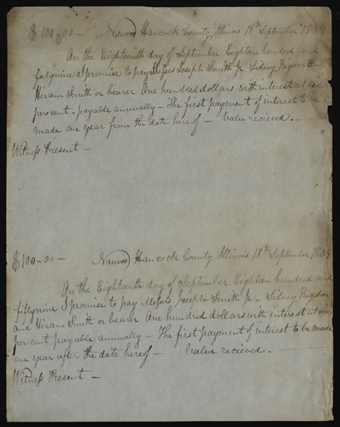 $100-00- Nauvoo Hancock County, Illinois 18th September 1839
On the Eighteenth day of September Eighteen hundred and
fiftynine I promise to pay Messrs Joseph Smith Jr Sidney Rigdon &
Hiram Smith or bearer One hundred dollars with interest at six
per cent - payable annually - The first payment of interest to be
made one year from the date hereof - Value recieved. -
Witness Present -
$100-00- Nauvoo Hancock County, Illinois 18th September 1839
On the Eighteenth day of September Eighteen hundred and
fiftynine I promise to pay Messrs Joseph Smith Jr - Sidney Rigdon
and Hiram Smith or bearer One hundred dollars with interest at six
per cent payable annually - The first payment of interest to be made
one year after the date hereof - Value recieved.
Witness Present -